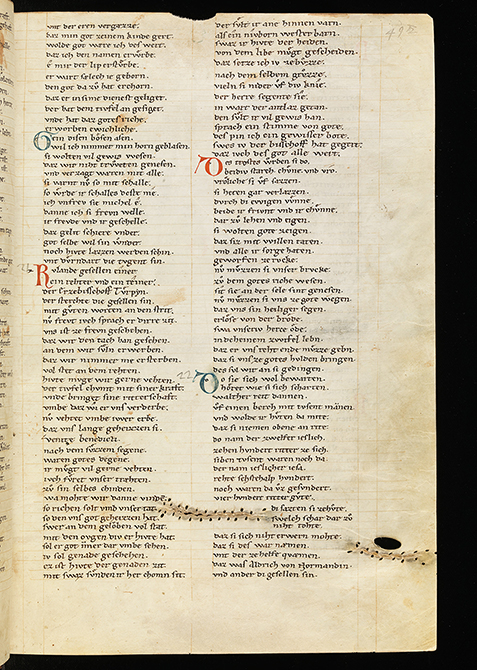 wir der eren vergæzze.
daz min got zeinem kinde gert.
wolde got wære ich des wert.
daz ich den namen erwurbe.
e mir der lip ersturbe.
er wirt sælech ie geborn.
den got da zv hat erchorn.
daz er in sime dienest gesiget.
der hat dem tivfel an gesiget.
vnde hat daz gotes riche.
erworben ewichliche.
Oem disen bosen asen.
wil ich nimmer min horn geblasen.
si wolten vil gewis wesen.
daz wir niht trvweten genesen.
vnd verzagt waren mit alle.
si warnt nv so mit schalle.
so wrde ir schalles deste me.
ich vnfrev sie michel e.
danne ich si frevn welle.
ir frevde vnd ir geselle.
daz gelit schiere vnder.
got selbe wil sin wnder.
noch hivte lazzen werden schin.
vnt vertvn daz die tvgent sin.
Rvlandes gesellen einer
ein rehter vnd ein reiner.
der Erzebisschof Tvrpin.
der sterchte die gesellen sin.
mit gvten worten an den strit.
nv frevt ivch sprach er dirre zit.
vns ist ze frevn geschehen.
daz wir den tach han gesehen.
an dem wir svln erwerben.
daz wir nimmer me ersterben.
vol stet an dem rehten.
hivte mvge wir gerne vehten.
der tivfel chvmt mit siner krafte.
vnde bringet sine riterschaft.
vmbe daz wi er vns verderbe.
nv vehtet vmbe iwer erbe.
daz vns lange geheizzen si.
venite benedicti.
nach dem svzzen segene.
waren gotes degene.
ir mvgt vil gerne vehten.
ivch fvret vnser trahten.
zv sin selbes chinden.
wa mohte wir danne vinde
so richen solt vmb vnser tat.
so den vns got geheizzen hat.
swer an dem gelovben vol stat.
mit den ovgen div er hivte hat.
sol er got imer dar vnde sehen.
iv sol genade geschehen.
ez ist hivte der genaden zit
mit swaz svnden ir her chomn sit.
der svlt ir ane hinnen varn.
als ein niwborn westerbarn.
swaz ir hivte der heiden.
von dem libe mvgt gescheiden.
daz setze ich iv ze bvzze.
nach dem selbem grvzze.
vieln si nider vf div knie.
der herre segente sie.
in wart der antlaz getan.
den svlt ir vil gewis han.
sprach ein stimme von gote.
des pin ich ein gewisser bote.
swes iv der bisschof hat gegert.
daz ivch des got alle wert.
Des trostes wrden si do.
beidiv starch chvne vnd vro.
vroliche si vf sazzen.
si heten gar verlazzen.
durch di ewigen wnne.
beide ir frivnt vnd ir chvnne.
dar zv lehen vnd eigen.
si wolten gote zeigen.
daz siz mit willen taten.
vnd alle ir sorge haten.
geworfen ze rvcke.
nv mvzzen si vnser brvcke.
zv dem gotes riche wesen.
sit sie an der sele sint genesen.
nv mvzzen si vns ze gote wegen.
daz vns sin heiliger segen.
erlose von der brode.
swi vnserw herze ode.
in deheinem zwifel lebn.
daz er vns reht ende mvzze gebn.
daz si vns ze gotes hvlden bringen.
des sol wir an si gedingen.
Do sie sich wol bewarten.
horet wie si sich scharten.
walther reit dannen.
vf einen berch mit tvsent mannen.
vnd wolde ir hvten da mite.
daz si niemen obene an rite.
do nam der zwelfer ieslich.
zehen hundert ritter ze sich.
siben tvsent waren noch da.
der nam ieslicher iesa.
rehte sehstehalp hvndert.
noch waren da vz gesvndert.
vier hvndert ritter gvte.
di sazten si zehvte.
swelch schar dar zv
niht tohte.
daz si sich niht erwern mohte.
daz si des war næmen.
vnt der ze helfe qvæmen.
daz was Aldrich von Normandin.
vnd ander di gesellen sin.